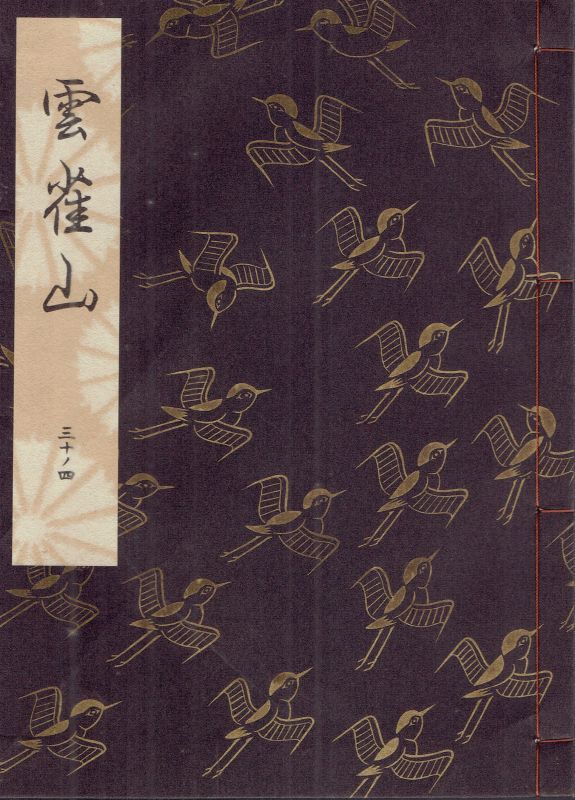 雲雀山
三十ノ四